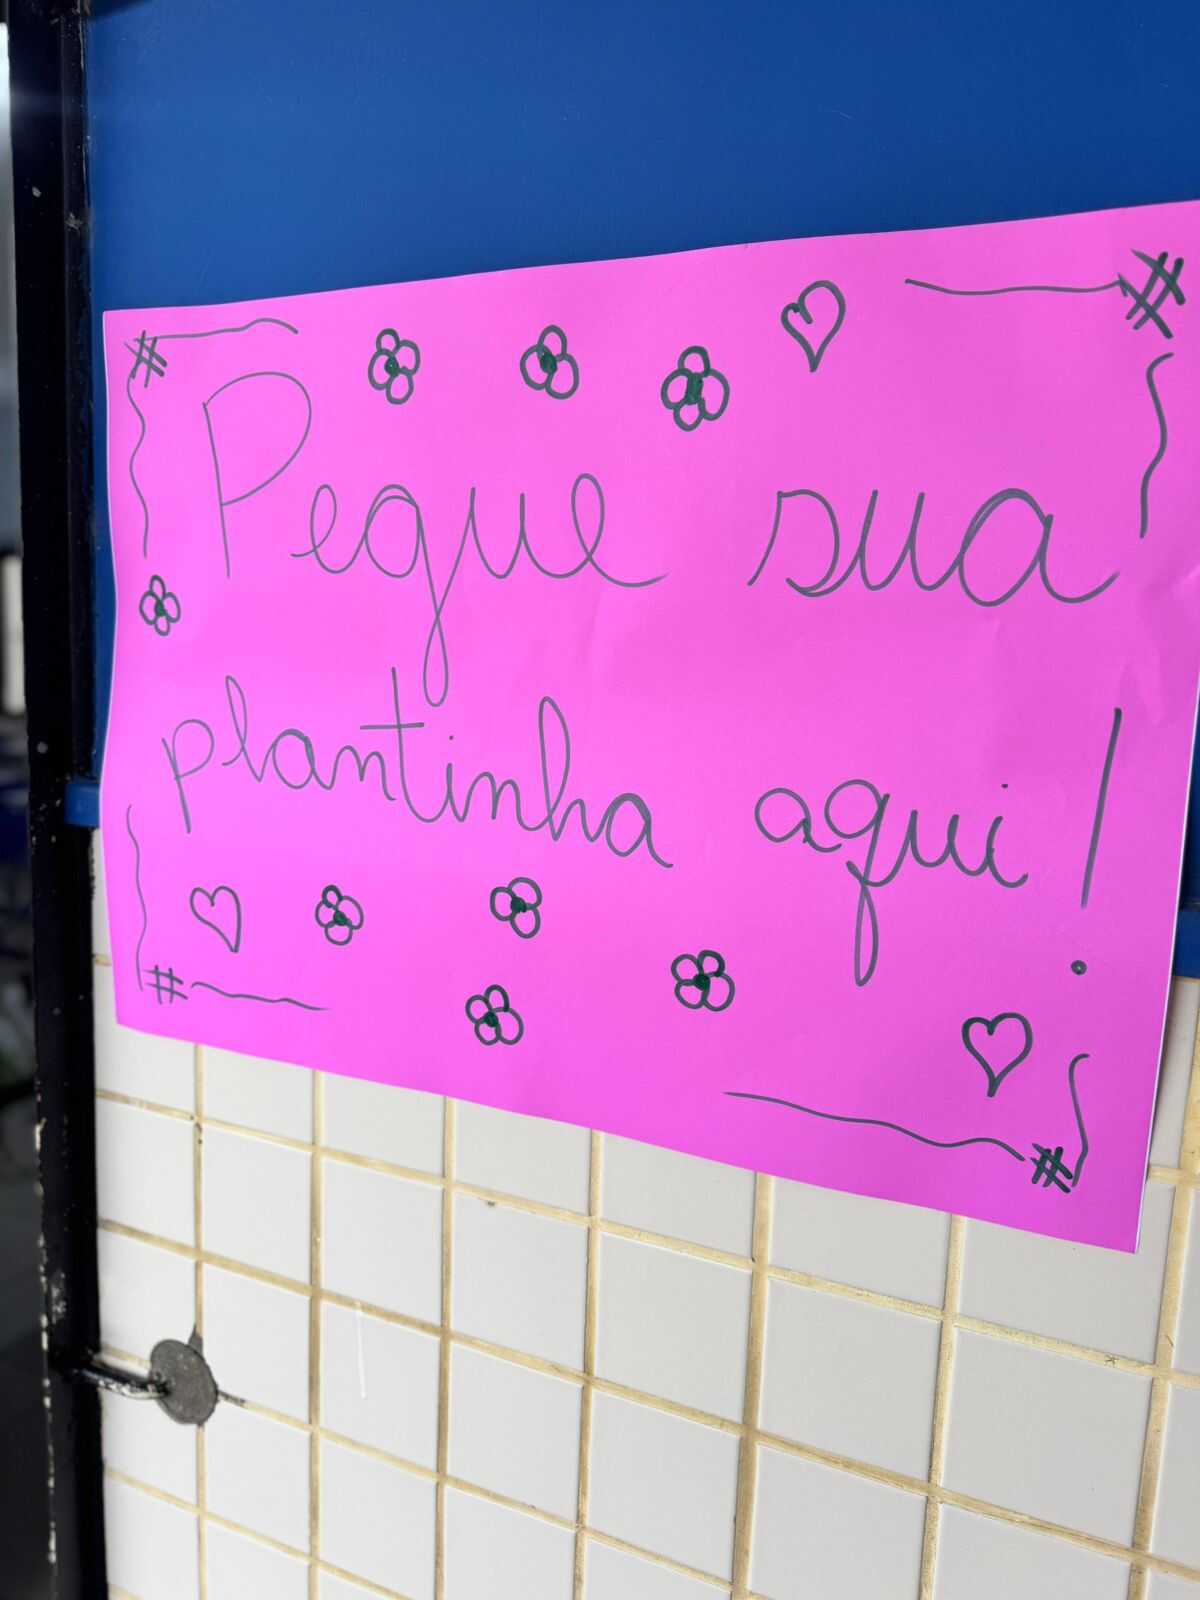 Pegue sua
plantinha aqui!